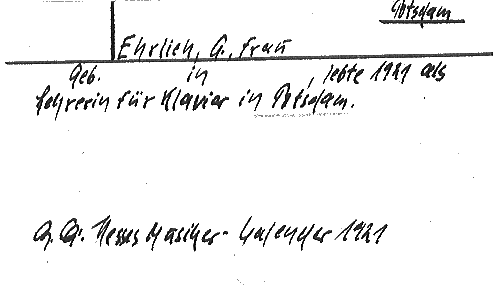 Potsdam
Ehrlich, G., Frau
Geb. in , lebte 1921 als
Lehrerin für Klavier in Potsdam.
Hesses Musiker-Kalender 1921